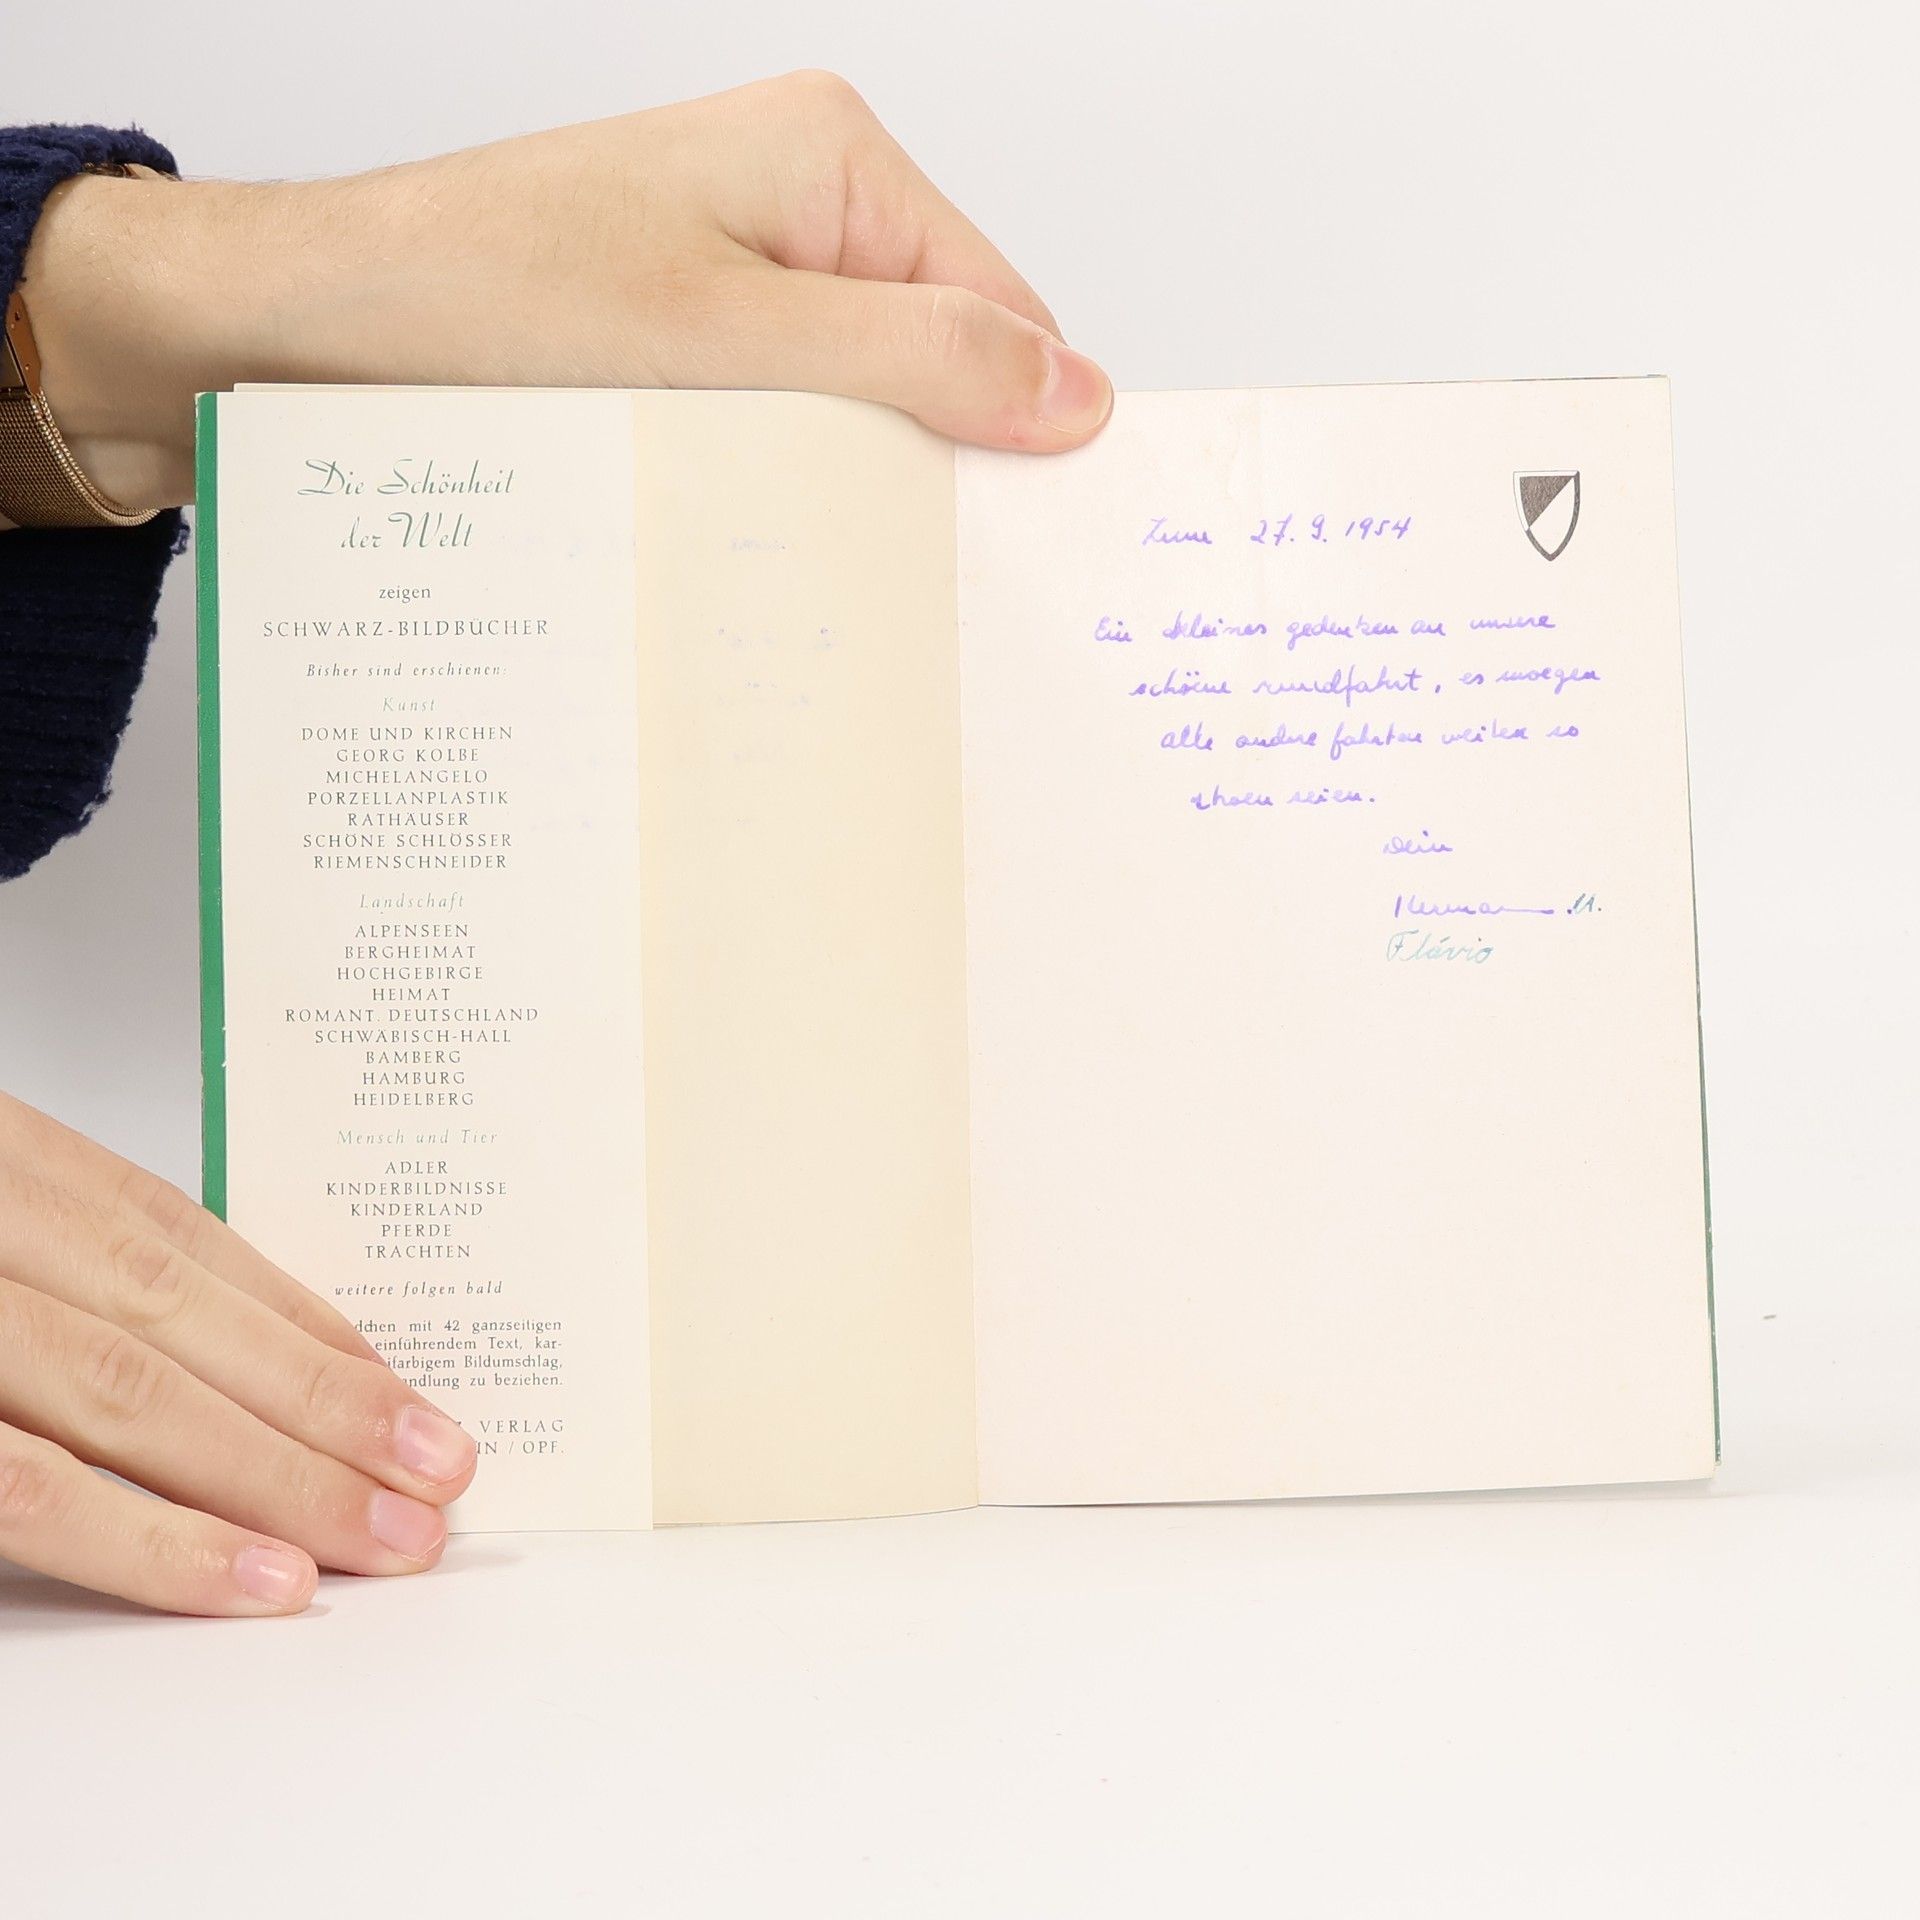 Die Schönheit
der Welt
zeigen
SCHWARZ-BILDBÜCHER
Bisher sind erschienen:
Kunst
DOME UND KIRCHEN
GEORG KOLBE
MICHELANGELO
PORZELLANPLASTIK
RATHÄUSER
SCHÖNE SCHLÖSSER
RIEMENSCHNEIDER
Landschaft
ALPENSEEN
BERGHEIMAT
HOCHGEBIRGE
HEIMAT
ROMANT. DEUTSCHLAND
SCHWÄBISCH-HALL
BAMBERG
HAMBURG
HEIDELBERG
Mensch und Tier
ADLER
KINDERBILDNISSE
KINDERLAND
PFERDE
TRACHTEN
weitere folgen bald
dchen mit 42 ganzseitigen
einführendem Text, kar-
ifarbigem Bildumschlag,
andlung zu beziehen.
VERLAG
ÜN / OPF.
27. 9. 1954
Ein kleines gedenken an unsere
schöne rundfahrt, es moegen
alle andere fahrten weiter so
schoen seien.
Dein
Hermann M.
Flávio